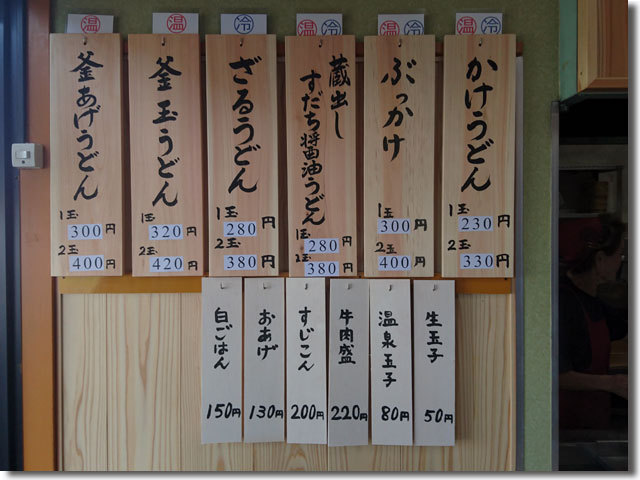 温 冷
かけうどん
1玉 230円
2玉 330円
温 冷
ぶっかけ
1玉 300円
2玉 400円
温 冷
蔵出し
すだち醤油うどん
1玉 280円
2玉 380円
冷
ざるうどん
1玉 280円
2玉 380円
温
釜玉うどん
1玉 320円
2玉 420円
温
釜あげうどん
1玉 300円
2玉 400円
生玉子
50円
温泉玉子
80円
牛肉盛
220円
すじこん
200円
おあげ
130円
白ごはん
150円